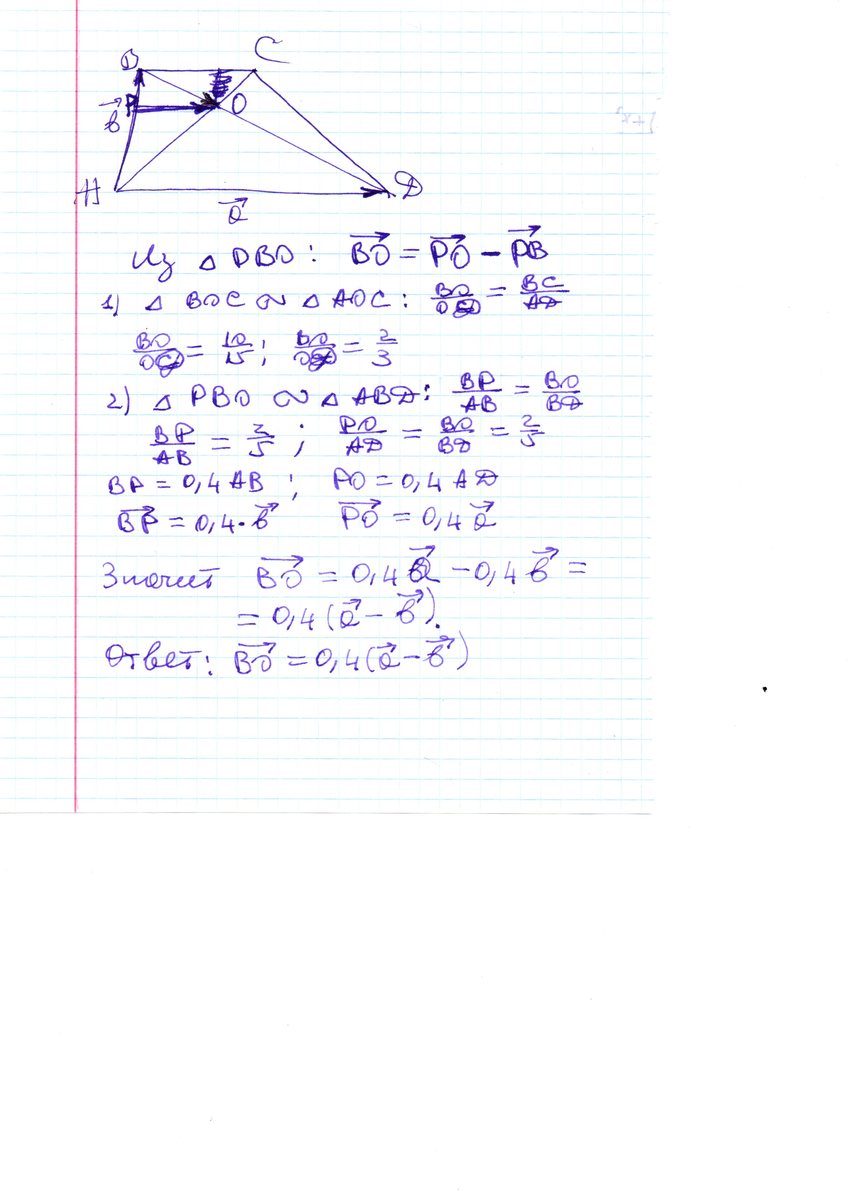 B C
P O
b⃗
A D
a⃗
Из △ PBO: BO⃗ = PO⃗ − PB⃗
1) △ BOC ∾ △ AOC: BO/OD = BC/AD
BO/OD = 10/15; BO/OD = 2/3
2) △ PBO ∾ △ ABD: BP/AB = BO/BD
BP/AB = 2/5; PO/AD = BO/BD = 2/5
BP = 0,4 AB; PO = 0,4 AD
BP⃗ = 0,4·b⃗ PO⃗ = 0,4 a⃗
Значит BO⃗ = 0,4 a⃗ − 0,4 b⃗ =
= 0,4 (a⃗ − b⃗).
Ответ: BO⃗ = 0,4(a⃗ − b⃗)